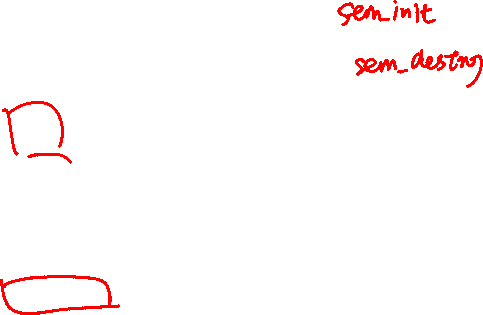 sem_init
sem_destroy